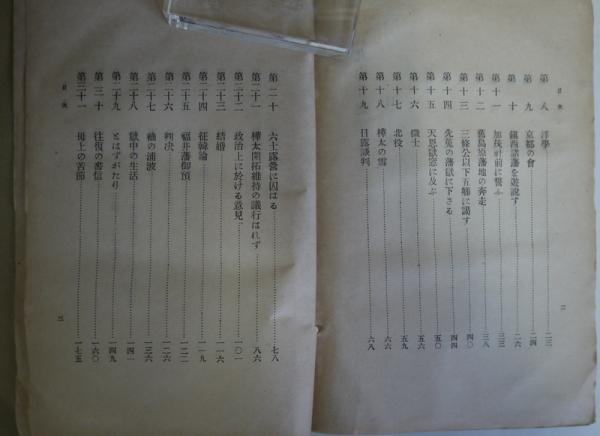 目次
第八 洋學 二三
第九 京都の會 二四
第十 鎭西諸藩を遊說す 二六
第十一 加茂社前に誓ふ 三三
第十二 舊島原藩地の奔走 三八
第十三 三條公以下五卿に謁す 四〇
第十四 先冤の藩獄に下さる 四四
第十五 天恩獄窓に及ぶ 五〇
第十六 徵士 五六
第十七 北役 五九
第十八 樺太の雪 六六
第十九 日露談判 六八
二
目次
第二十 六士露營に囚はる 七八
第二十一 樺太開拓維持の議行はれず 八六
第二十二 政治上に於ける意見 一〇一
第二十三 結婚 一一六
第二十四 征韓論 一一九
第二十五 福井藩御預 一二二
第二十六 判决 一二六
第二十七 袖の浦波 一三六
第二十八 獄中の生活 一四一
第二十九 とはずがたり 一四九
第三十 往復の書信 一六〇
第三十一 母上の苦節 一七五
三